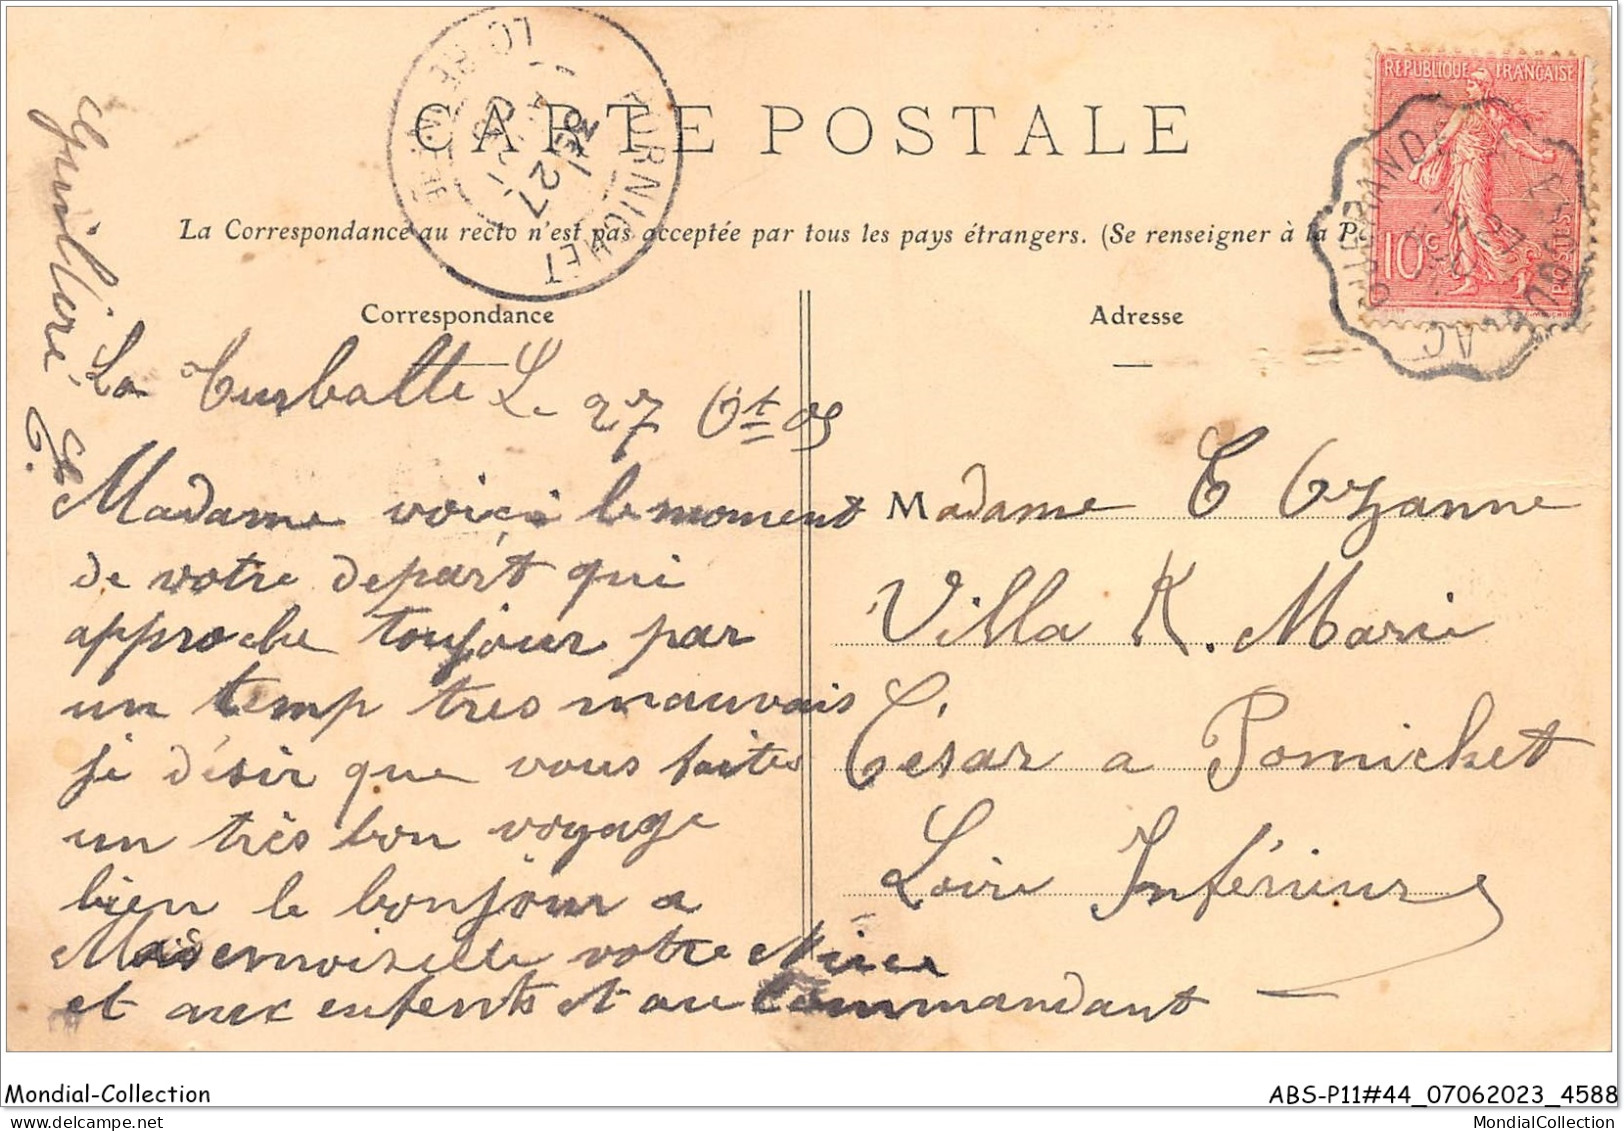 CARTE POSTALE
La Correspondance au recto n'est pas acceptée par tous les pays étrangers. (Se renseigner à la P
Correspondance
Adresse
REPUBLIQUE FRANÇAISE
10c
POSTES
POSTES
La Turballe L. 27 8t 05
Madame voici le moment
de votre depart qui
approche toujour par
un temp tres mauvais
je désir que vous faites
un très bon voyage
bien le bonjour a
Mademoiselle votre Niece
et aux enfents et au Commandant
Madame
Villa K. Marie
César a Pornichet
Loire Inférieur
Mondial-Collection
ABS-P11#44_07062023_4588
MondialCollection.com